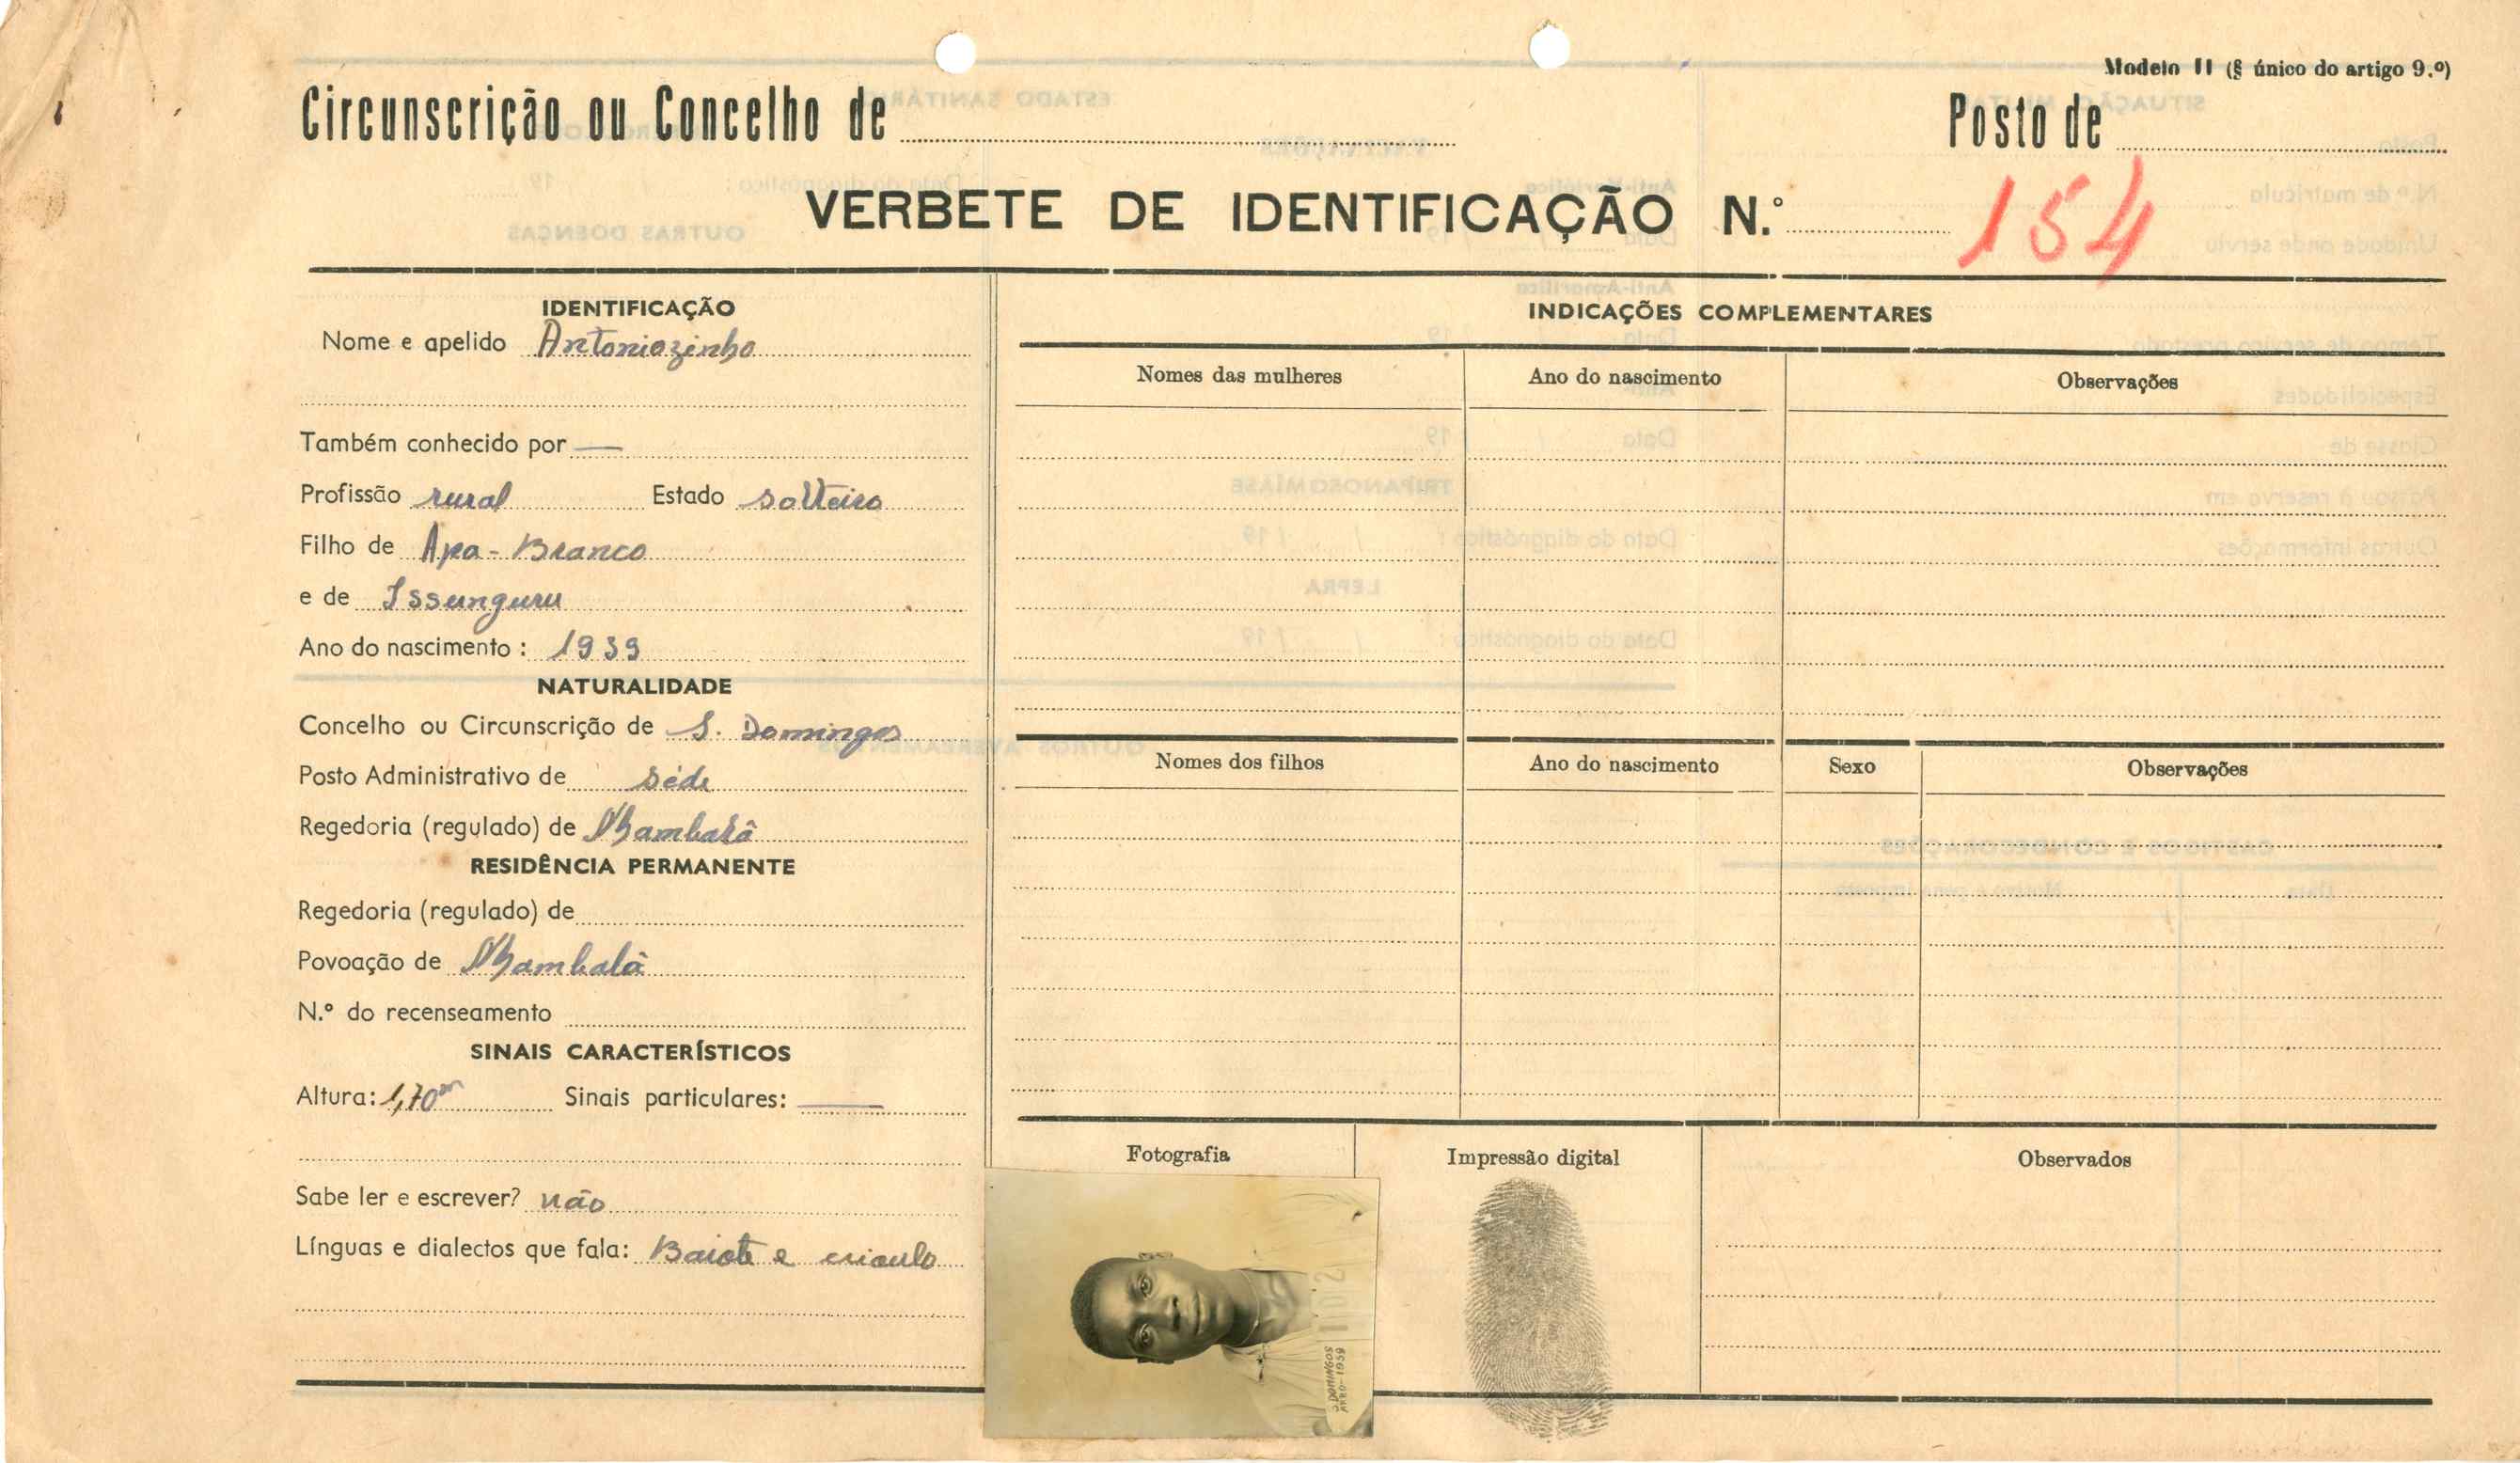 Modelo II (§ único do artigo 9.º)
Circunscrição ou Concelho de
Posto de
VERBETE DE IDENTIFICAÇÃO N.º 154
IDENTIFICAÇÃO
Nome e apelido Antoniozinho
Também conhecido por —
Profissão rural Estado solteiro
Filho de Apa-Branco
e de Issunguru
Ano do nascimento: 1939
NATURALIDADE
Concelho ou Circunscrição de S. Domingos
Posto Administrativo de séde
Regedoria (regulado) de
RESIDÊNCIA PERMANENTE
Regedoria (regulado) de
Povoação de
N.º do recenseamento
SINAIS CARACTERÍSTICOS
Altura: 1,70m Sinais particulares: —
Sabe ler e escrever? não
Línguas e dialectos que fala: Baiote e crioulo
INDICAÇÕES COMPLEMENTARES
Nomes das mulheres Ano do nascimento Observações
Nomes dos filhos Ano do nascimento Sexo Observações
Fotografia Impressão digital Observados
S. DOMINGOS
ANO-1959